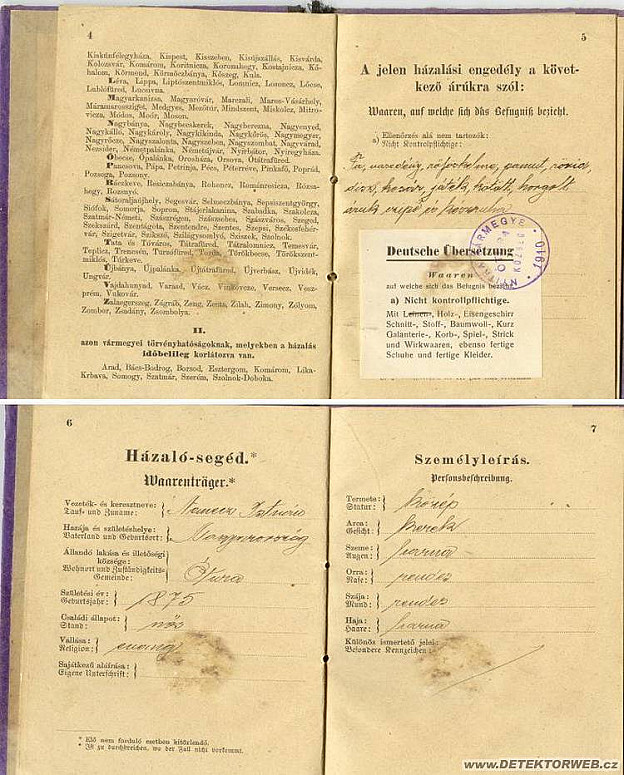 4
Kiskunfélegyháza, Kispest, Kisszeben, Kisújszállás, Kisvárda,
Kolozsvár, Komárom, Koritnicza, Koromahegy, Kostajnicza, Kő-
halom, Körmend, Körmöczbánya, Kőszeg, Kula.
Léva, Lippa, Liptószentmiklós, Losoncz, Lovrana, Lőcse,
Lublófüred, Lucsivna.
Magyarkanizsa, Magyaróvár, Marczali, Maros-Vásárhely,
Máramarossziget, Medgyes, Mezőtúr, Mindszent, Miskolcz, Mitro-
vicza, Módos, Moór, Moson.
Nagybánya, Nagybecskerek, Nagyberezna, Nagyenyed,
Nagykálló, Nagykároly, Nagykikinda, Nagykőrös, Nagymegyer,
Nagyrőcze, Nagyszalonta, Nagyszeben, Nagyszombat, Nagyvárad,
Nezsider, Németpalánka, Németújvár, Nyírbátor, Nyíregyháza.
Óbecse, Opalánka, Orosháza, Orsova, Ótátrafüred.
Pancsova, Pápa, Petrinja, Pécs, Péterréve, Pinkafő, Poprád,
Pozsega, Pozsony.
Ráczkeve, Resiczabánya, Rohoncz, Románresicza, Rózsa-
hegy, Rozsnyó.
Sátoraljaújhely, Segesvár, Selmeczbánya, Sepsiszentgyörgy,
Siófok, Somorja, Sopron, Stájerlakanina, Szabadka, Szakolcza,
Szatmár-Németi, Szászrégen, Szászsebes, Szászváros, Szeged,
Szekszárd, Szentágota, Szentendre, Szentes, Szepsi, Székesfehér-
vár, Szigetvár, Szikszó, Szilágysomlyó, Sziszek, Szolnok.
Tata és Tóváros, Tátrafüred, Tátralomnicz, Temesvár,
Teplicz, Trencsén, Túrócz, Törökbecse, Törökszent-
miklós, Túrkeve.
Újbánya, Újpalánka, Újtátrafüred, Újverbász, Újvidék,
Ungvár.
Vajdahunyad, Varasd, Vácz, Vinkovcze, Versecz, Vesz-
prém, Vukovár.
Zalaegerszeg, Zágráb, Zeng, Zenta, Zilah, Zimony, Zólyom,
Zombor, Zsolna, Zsombolya.
II.
azon vármegyei törvényhatóságoknak, melyekben a házalás
időbelileg korlátozva van.
Arad, Bács-Bodrog, Borsod, Esztergom, Komárom, Lika-
Krbava, Somogy, Szatmár, Szerém, Szolnok-Doboka.
5
A jelen házalási engedély a követ-
kező árúkra szól:
Waaren, auf welche sich das Befugniß bezieht.
a) Ellenőrzés alá nem tartozók:
Nicht Kontrollpflichtige:
játék, kötött, horgolt
NYITRA VÁRMEGYE 1910
Deutsche Übersetzung
Waaren
auf welche sich das Befugnis bezieht
a) Nicht kontrollpflichtige.
Mit Leinen-, Holz-, Eisengeschirr
Schnitt-, Stoff-, Baumwoll-, Kurz
Galanterie-, Korb-, Spiel-, Strick
und Wirkwaaren, ebenso fertige
Schuhe und fertige Kleider.
6
Házaló-segéd.*
Waarenträger.*
Vezeték- és keresztneve:
Tauf- und Zuname:
Nemecz István
Hazája és születéshelye:
Vaterland und Geburtsort:
Magyarország
Állandó lakása és illetőségi
községe:
Wohnort und Zuständigkeits-
Gemeinde:
Ótura
Születési év:
Geburtsjahr:
1875
Családi állapot:
Stand:
nős
Vallása:
Religion:
evang
Sajátkezű aláírása:
Eigene Unterschrift:
* Elő nem forduló esetben kitörlendő.
* Ist zu durchstreichen, wo der Fall nicht vorkommt.
7
Személyleírás.
Personsbeschreibung.
Termete:
Statur:
közép
Arca:
Gesicht:
kerek
Szeme:
Augen:
barna
Orra:
Nase:
rendes
Szája:
Mund:
rendes
Haja:
Haare:
barna
Különös ismertető jelei:
Besondere Kennzeichen:
www.DETEKTORWEB.cz